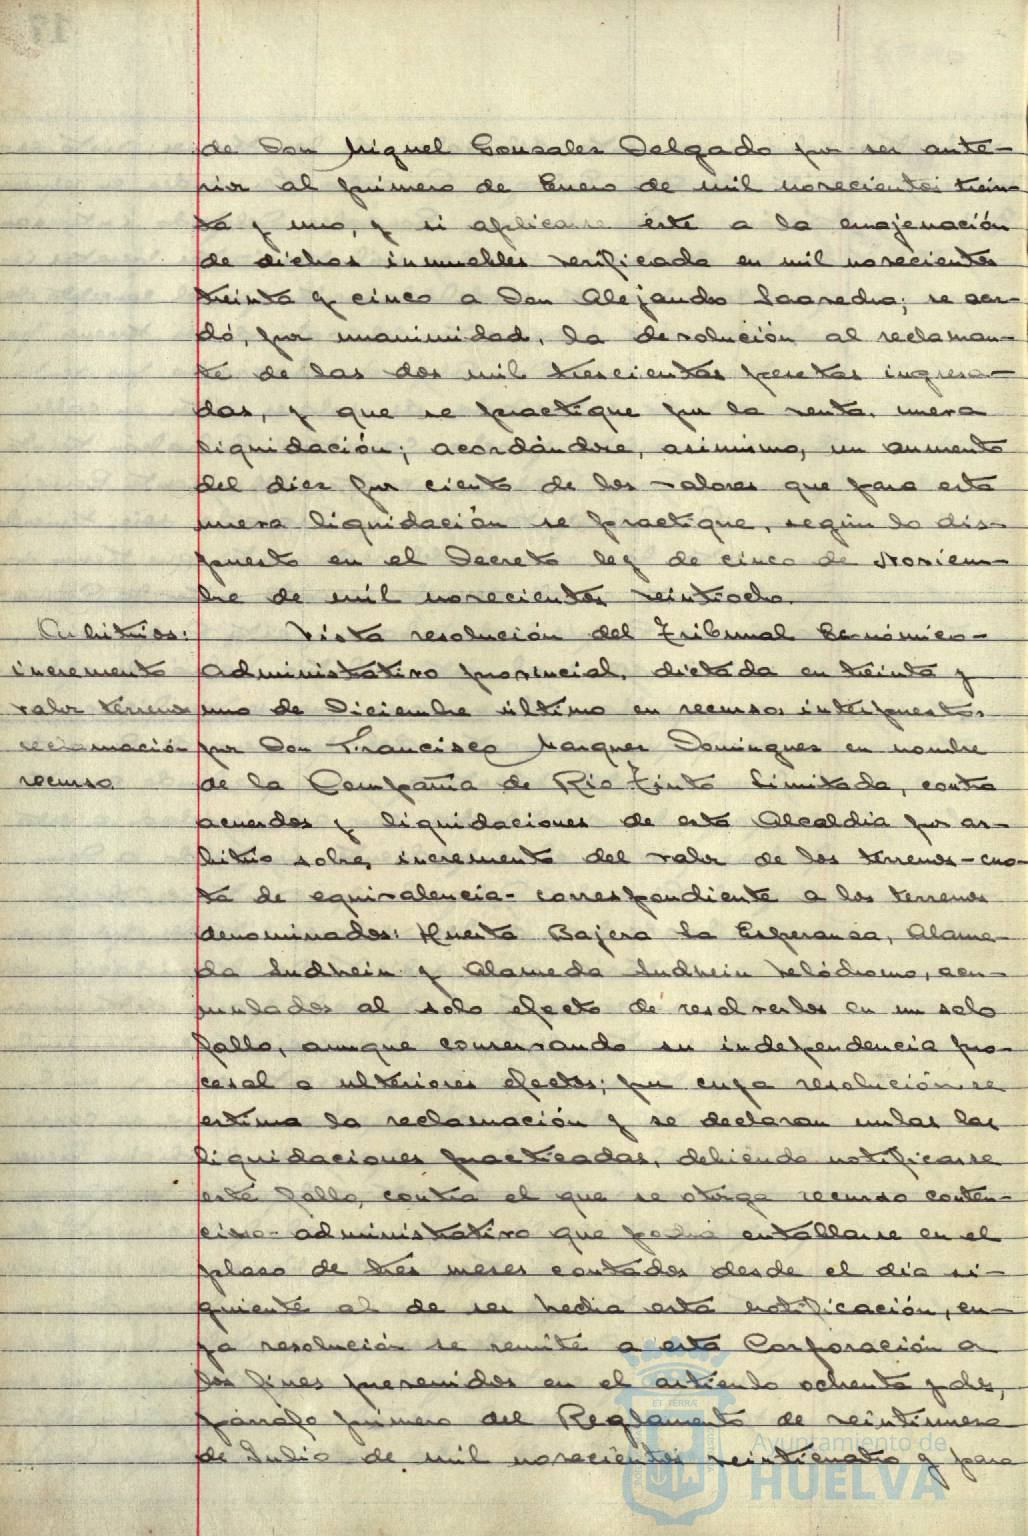 de Don Miguel Gonzalez Delgado por ser ante-
rior al primero de Enero de mil novecientos trein-
ta y uno, y si aplicarse este a la enajenación
de dichos inmuebles verificada en mil novecientos
treinta y cinco a Don Alejandro Saavedra; se acor-
dó, por unanimidad, la devolución al reclaman-
te de las dos mil trescientas pesetas ingresa-
das, y que se practique por la renta, nueva
liquidación; acordándose, asimismo, un aumento
del diez por ciento de los valores que para esta
nueva liquidación se practique, según lo dis-
puesto en el Decreto ley de cinco de Noviem-
bre de mil novecientos veintiocho.
Arbitrios:
incremento
valor terrenos
reclamación
recurso
Vista resolución del Tribunal Económico-
administrativo provincial, dictada en treinta y
uno de Diciembre último en recursos interpuestos
por Don Francisco Marquez Dominguez en nombre
de la Compañia de Rio Tinto Limitada, contra
acuerdos y liquidaciones de esta Alcaldia por ar-
bitrio sobre incremento del valor de los terrenos-cuo-
ta de equivalencia- correspondiente a los terrenos
denominados: Huerta Bajera la Esperanza, Alame-
da Sudheim y Alameda Sudheim Velódromo, acu-
mulados al solo efecto de resolverlos en un solo
fallo, aunque conservando su independencia pro-
cesal a ulteriores efectos; por cuya resolución se
estima la reclamación y se declaran nulas las
liquidaciones practicadas, debiendo notificarse
este fallo, contra el que se otorga recurso conten-
cioso-administrativo que podrá entablarse en el
plazo de tres meses contados desde el día si-
guiente al de ser hecha esta notificación, cu-
ya resolución se remite a esta Corporación a
los fines prevenidos en el artículo ochenta y dos,
párrafo primero del Reglamento de veintinueve
de Julio de mil novecientos veinticuatro y para
Ayuntamiento de
HUELVA